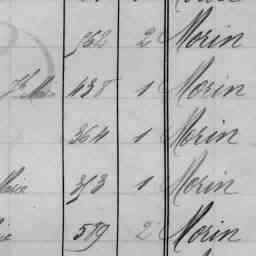 762 2 Morin
438 1 Morin
364 1 Morin
313 1 Morin
519 2 Morin